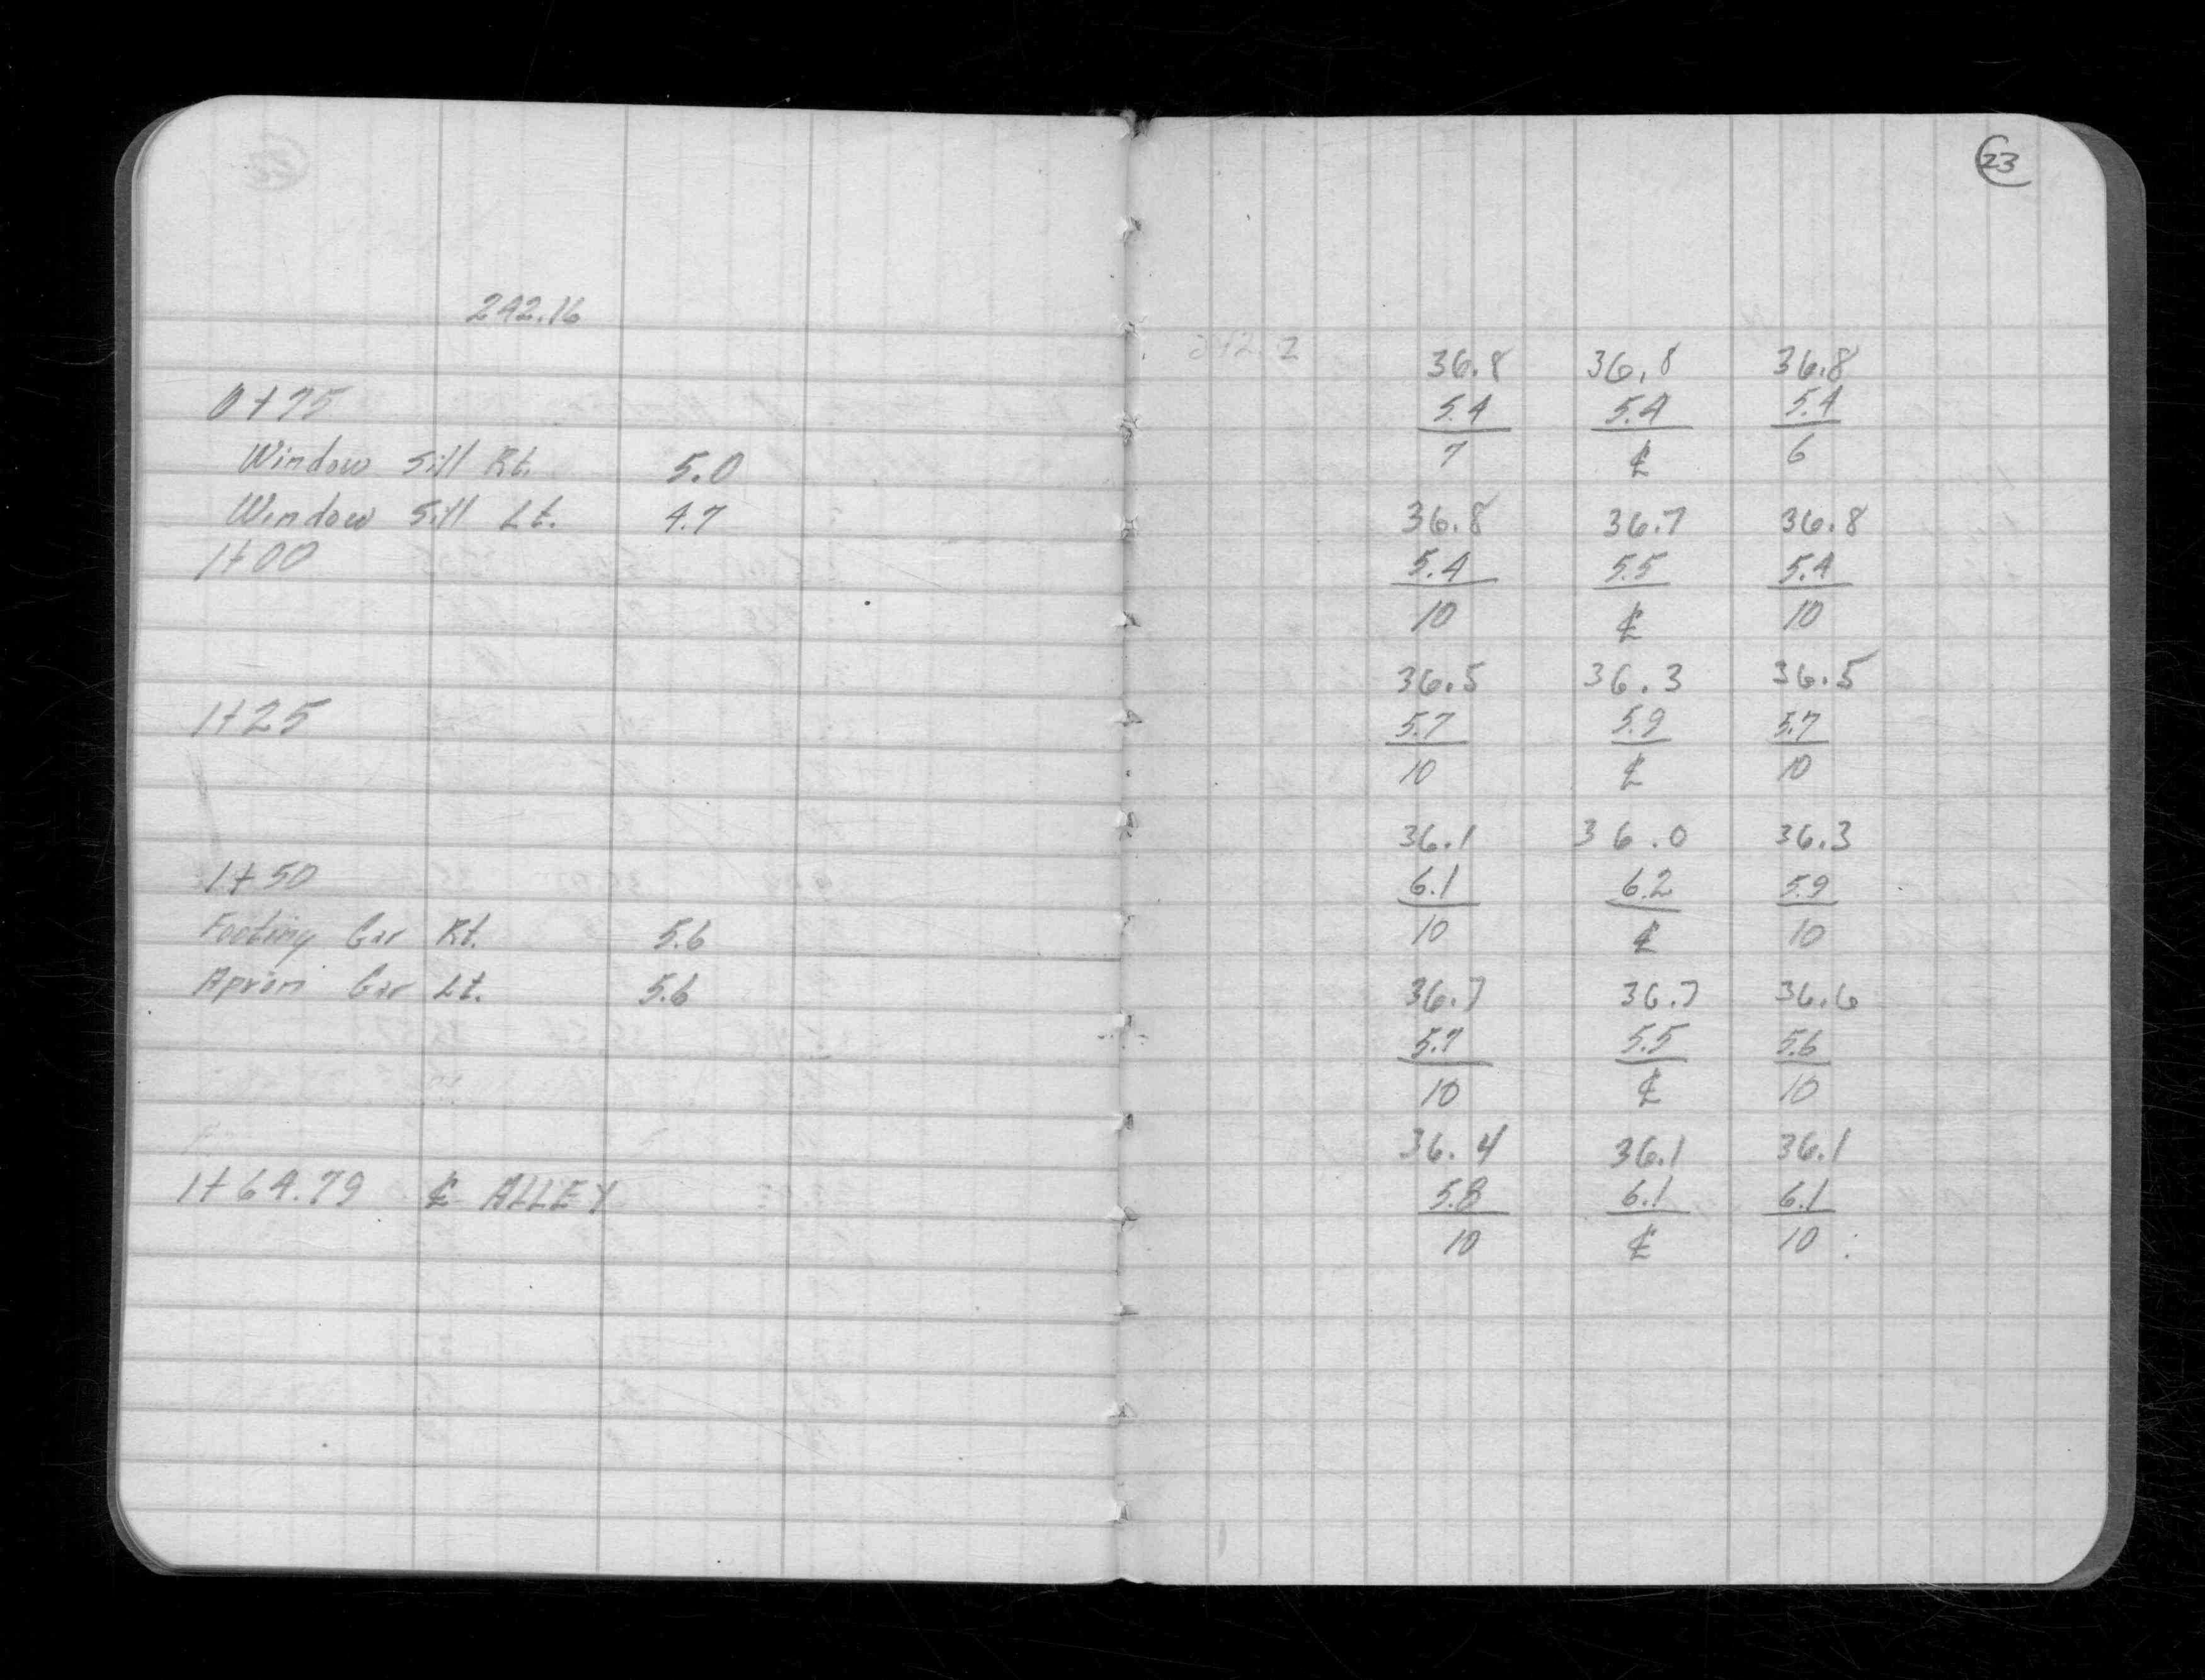 242.16
0+75
Window Sill Rt. 5.0
Window Sill Lt. 4.7
1+00
1+25
1+50
Footing Gar Rt. 5.6
Apron Gar Lt. 5.6
1+64.79 ℄ ALLEY
23
242.2
36.8 36.8 36.8
5.4 5.4 5.4
7 ℄ 6
36.8 36.7 36.8
5.4 5.5 5.4
10 ℄ 10
36.5 36.3 36.5
5.7 5.9 5.7
10 ℄ 10
36.1 36.0 36.3
6.1 6.2 5.9
10 ℄ 10
36.7 36.7 36.6
5.7 5.5 5.6
10 ℄ 10
36.4 36.1 36.1
5.8 6.1 6.1
10 ℄ 10